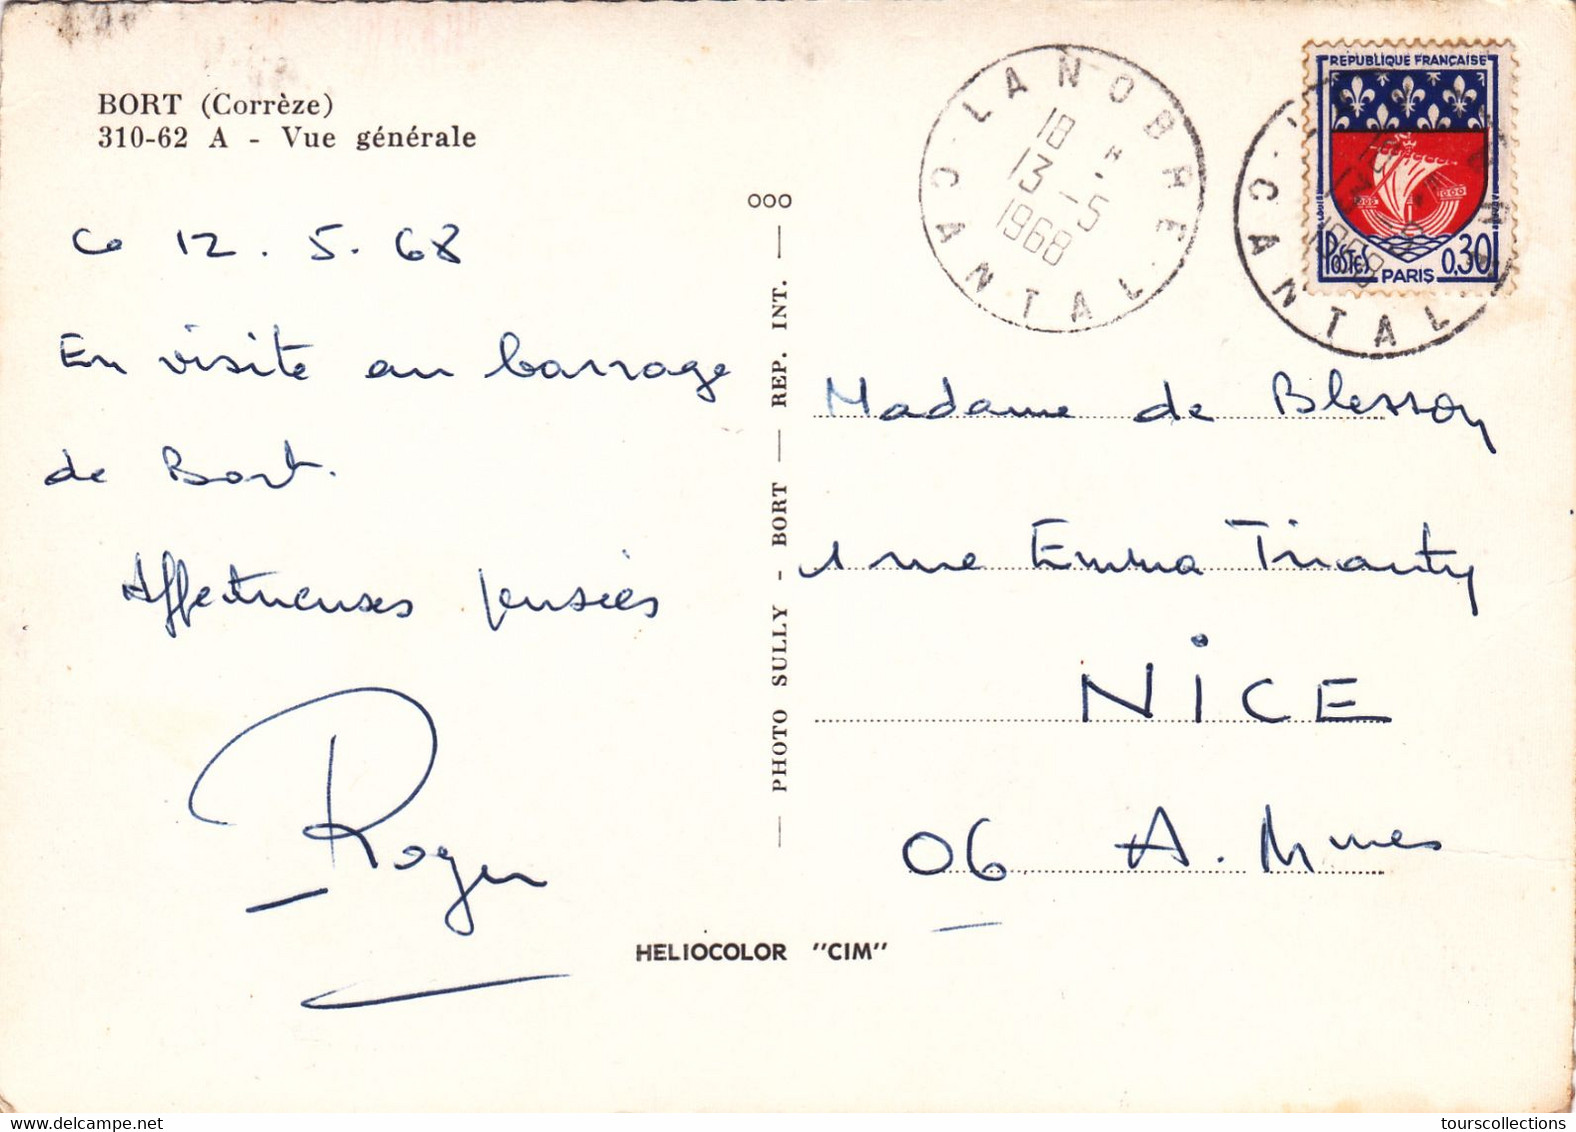 BORT (Corrèze)
310-62 A - Vue générale
Ce 12.5.68
En visite au barrage
de Bort.
Affectueuses pensées
Roger
HELIOCOLOR "CIM"
PHOTO SULLY - BORT — REP. INT. — OOO
LANOBRE
CANTAL
18 H
13-5
1968
REPUBLIQUE FRANÇAISE
POSTES 0,30
PARIS
CANTAL
Madame de Blesson
1 rue Emma Tiranty
NICE
06 A. Mmes
tourscollections